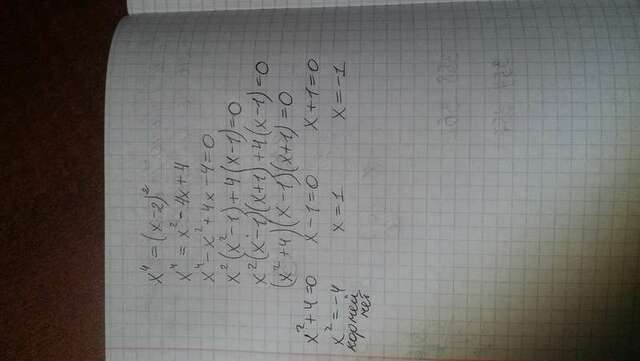 x⁴ = (x-2)²
x⁴ = x² - 4x + 4
x⁴ - x² + 4x - 4 = 0
x²(x² - 1) + 4(x - 1) = 0
x²(x - 1)(x + 1) + 4(x - 1) = 0
(x² + 4)(x - 1)(x + 1) = 0
x² + 4 = 0 x - 1 = 0 x + 1 = 0
x² = -4 x = 1 x = -1
корней
нет